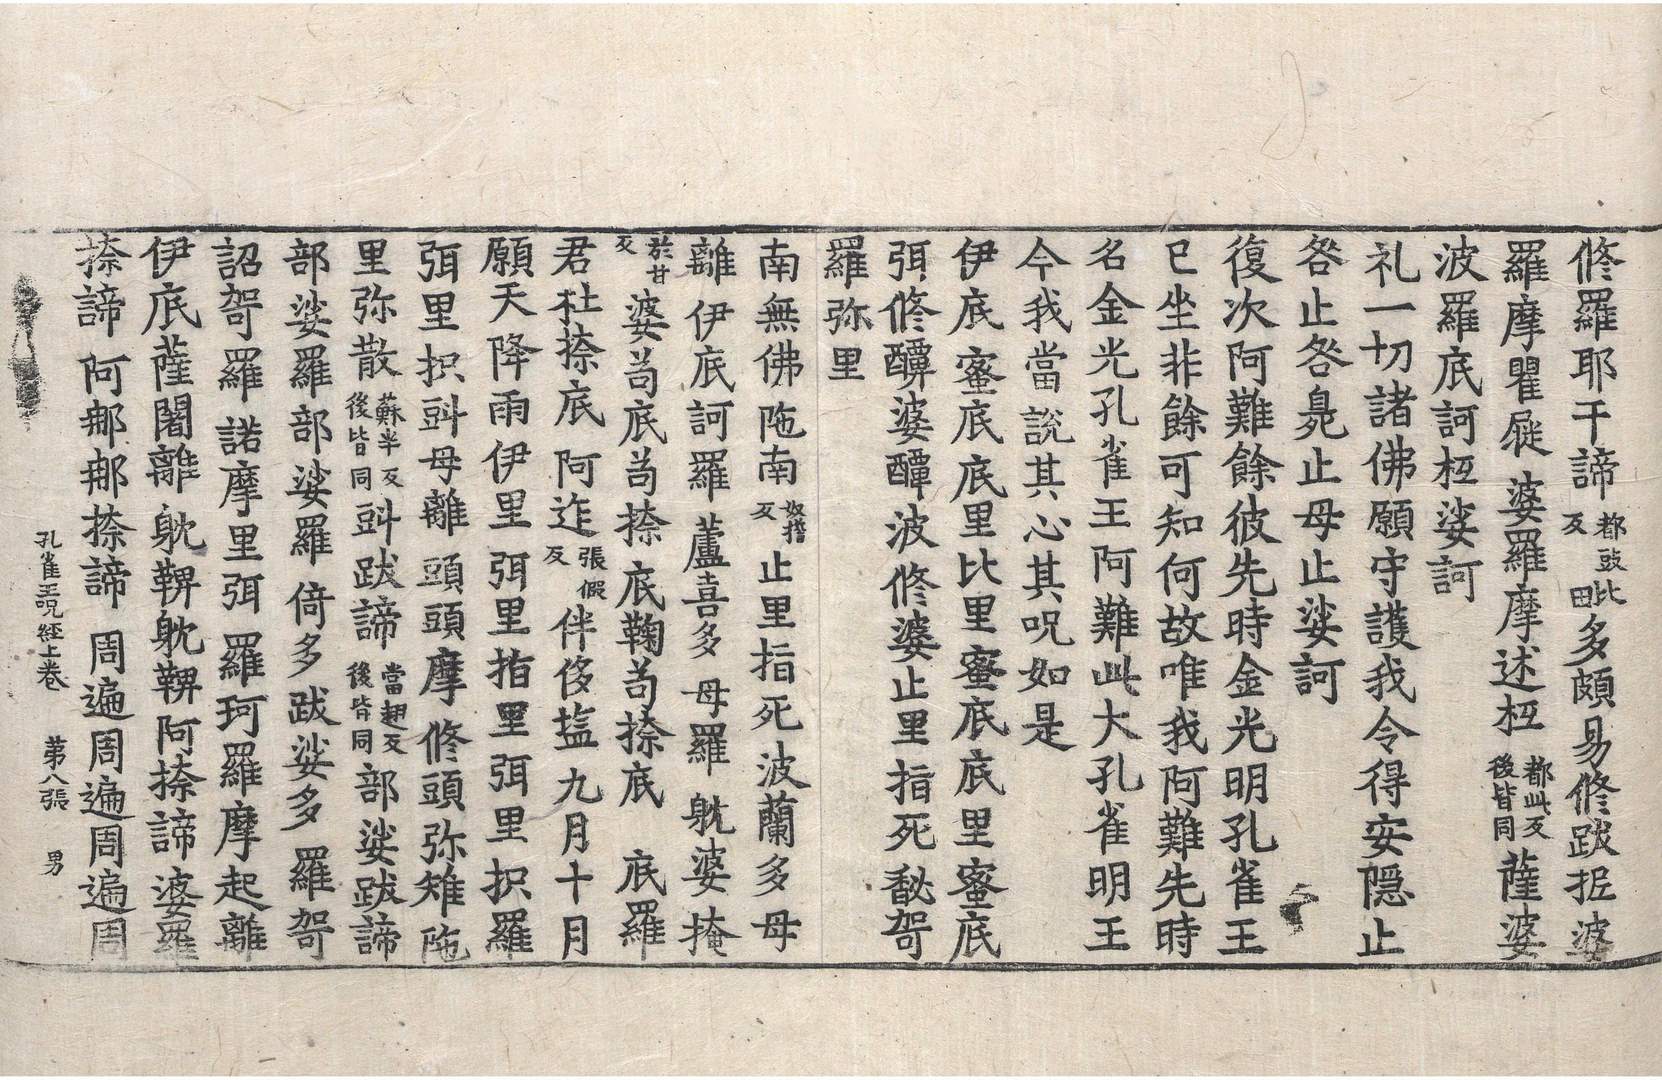 修羅耶干諦都豉反毗多頗易修跋抳婆
羅摩瞿屣 婆羅摩述柸都此反後皆同薩婆
波羅底訶柸娑訶
礼一切諸佛願守護我令得安隱止
咎止咎毚止母止娑訶
復次阿難餘彼先時金光明孔雀王
已坐非餘可知何故唯我阿難先時
名金光孔雀王阿難此大孔雀明王
今我當説其心其呪如是
伊底 蜜底 底里比里蜜底底里蜜底
弭修醰婆醰波修婆止里指死馝袈
羅弥里
南無佛陁南奴揩反止里指死 波蘭多母
離 伊底訶羅 蘆喜多 母羅 躭婆 掩
於甘反婆苟底苟捺 底鞠苟捺底 底羅
君杜捺底 阿迮張假反伴侈㙪九月十月
願天降雨伊里 弭里 指里 弭里抧羅
弭里抧㪷母離 頭頭摩 修頭弥雉陁
里弥散蘇半反後皆同㪷跋諦當翅反後皆同部娑跋諦
部娑羅部娑羅 倚多跋娑多 羅袈
詔袈羅 諾摩里弭 羅珂羅摩起離
伊底薩闍離 躭鞞躭鞞阿捺諦 婆羅
捺諦 阿郍郍捺諦 周遍周遍周遍周
孔雀王呪經上卷 苐八張 男